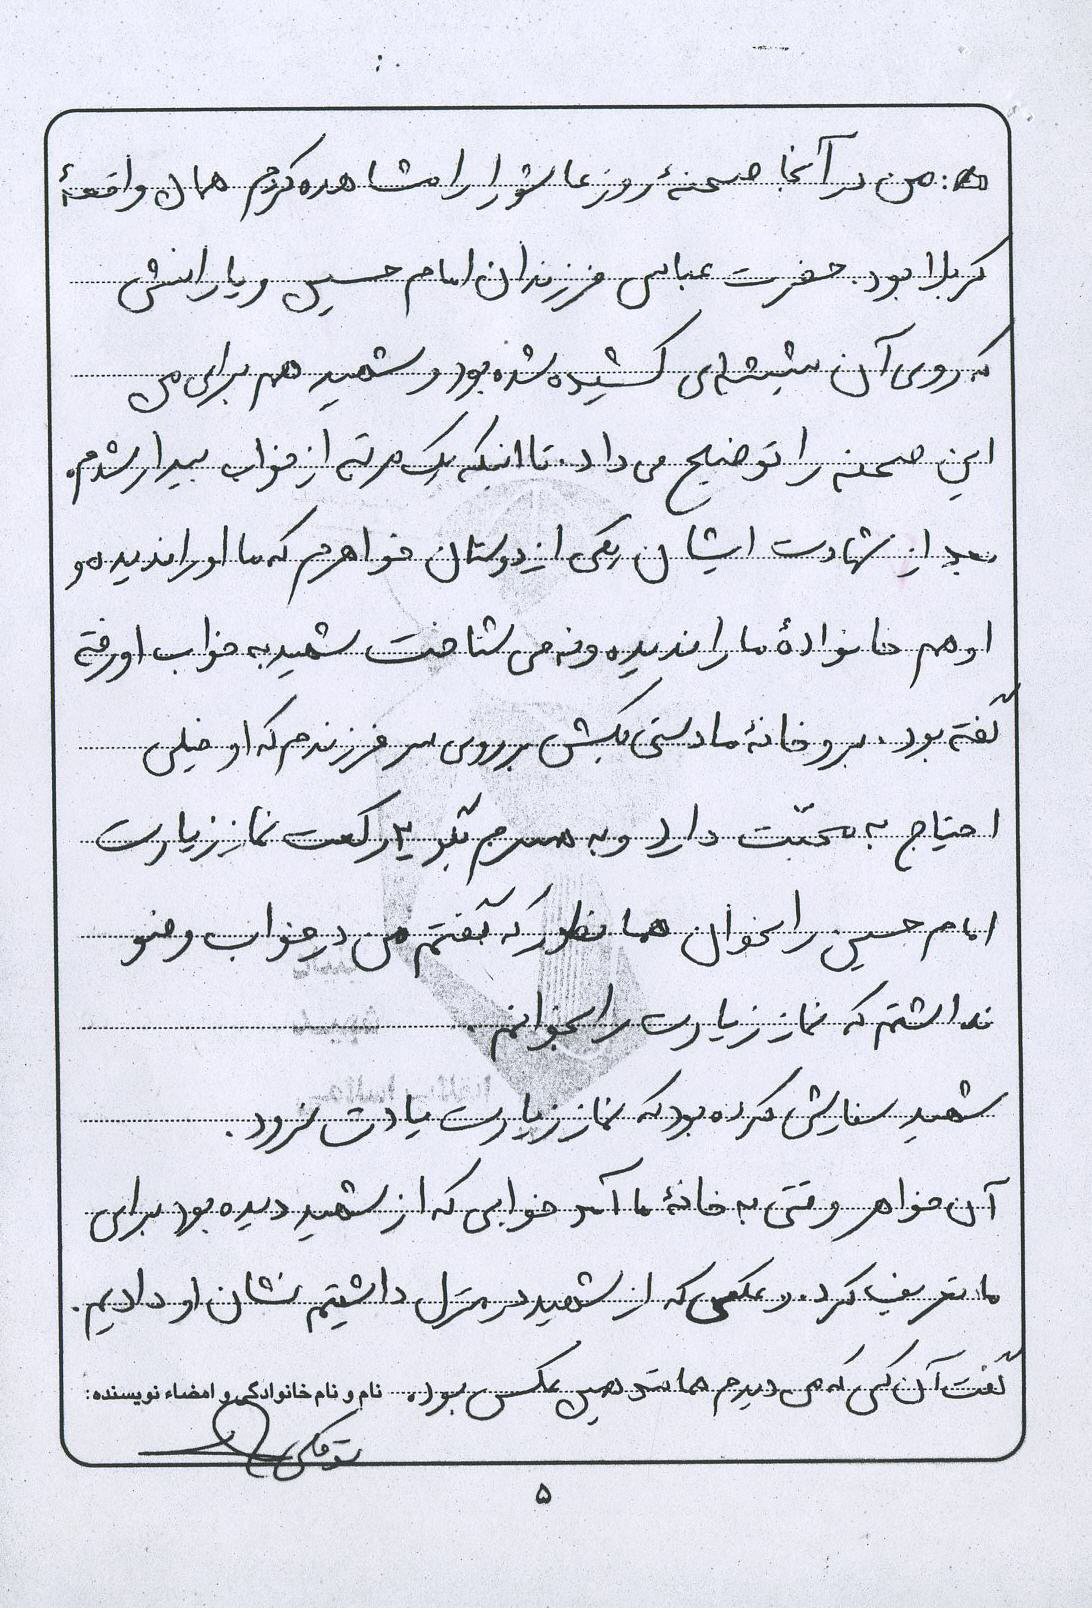 من در آنجا صحنهٔ روز عاشورا را مشاهده کردم همان واقعهٔ
کربلا بود. حضرت عباس فرزندان امام حسین و یارانش
که روی آن شیشه‌ای کشیده شده بود و شهید هم برای من
این صحنه را توضیح می داد. تا اینکه یک مرتبه از خواب بیدار شدم.
بعد از شهادت ایشان یکی از دوستان خواهرم که ما او را ندیده و
او هم خانوادهٔ ما را ندیده و نه می شناخت شهید به خواب او رفته
گفته بود. برو خانهٔ ما دستی بکش بر روی سر فرزندم که او خیلی
احتیاج به محبّت دارد و به همسرم بگو ۲ رکعت نماز زیارت
امام حسین را بخوان همانطور که گفتم من در خواب وضو
نداشتم که نماز زیارت را بخوانم.
شهید سفارش کرده بود که نماز زیارت یادت نرود.
آن خواهر وقتی به خانهٔ ما آمد خوابی که از شهید دیده بود برای
ما تعریف کرد. و عکسی که از شهید در منزل داشتیم نشان او دادیم.
گفت آن کسی که من دیدم همانند همین عکس بود. نام و نام خانوادگی و امضاء نویسنده:
۵